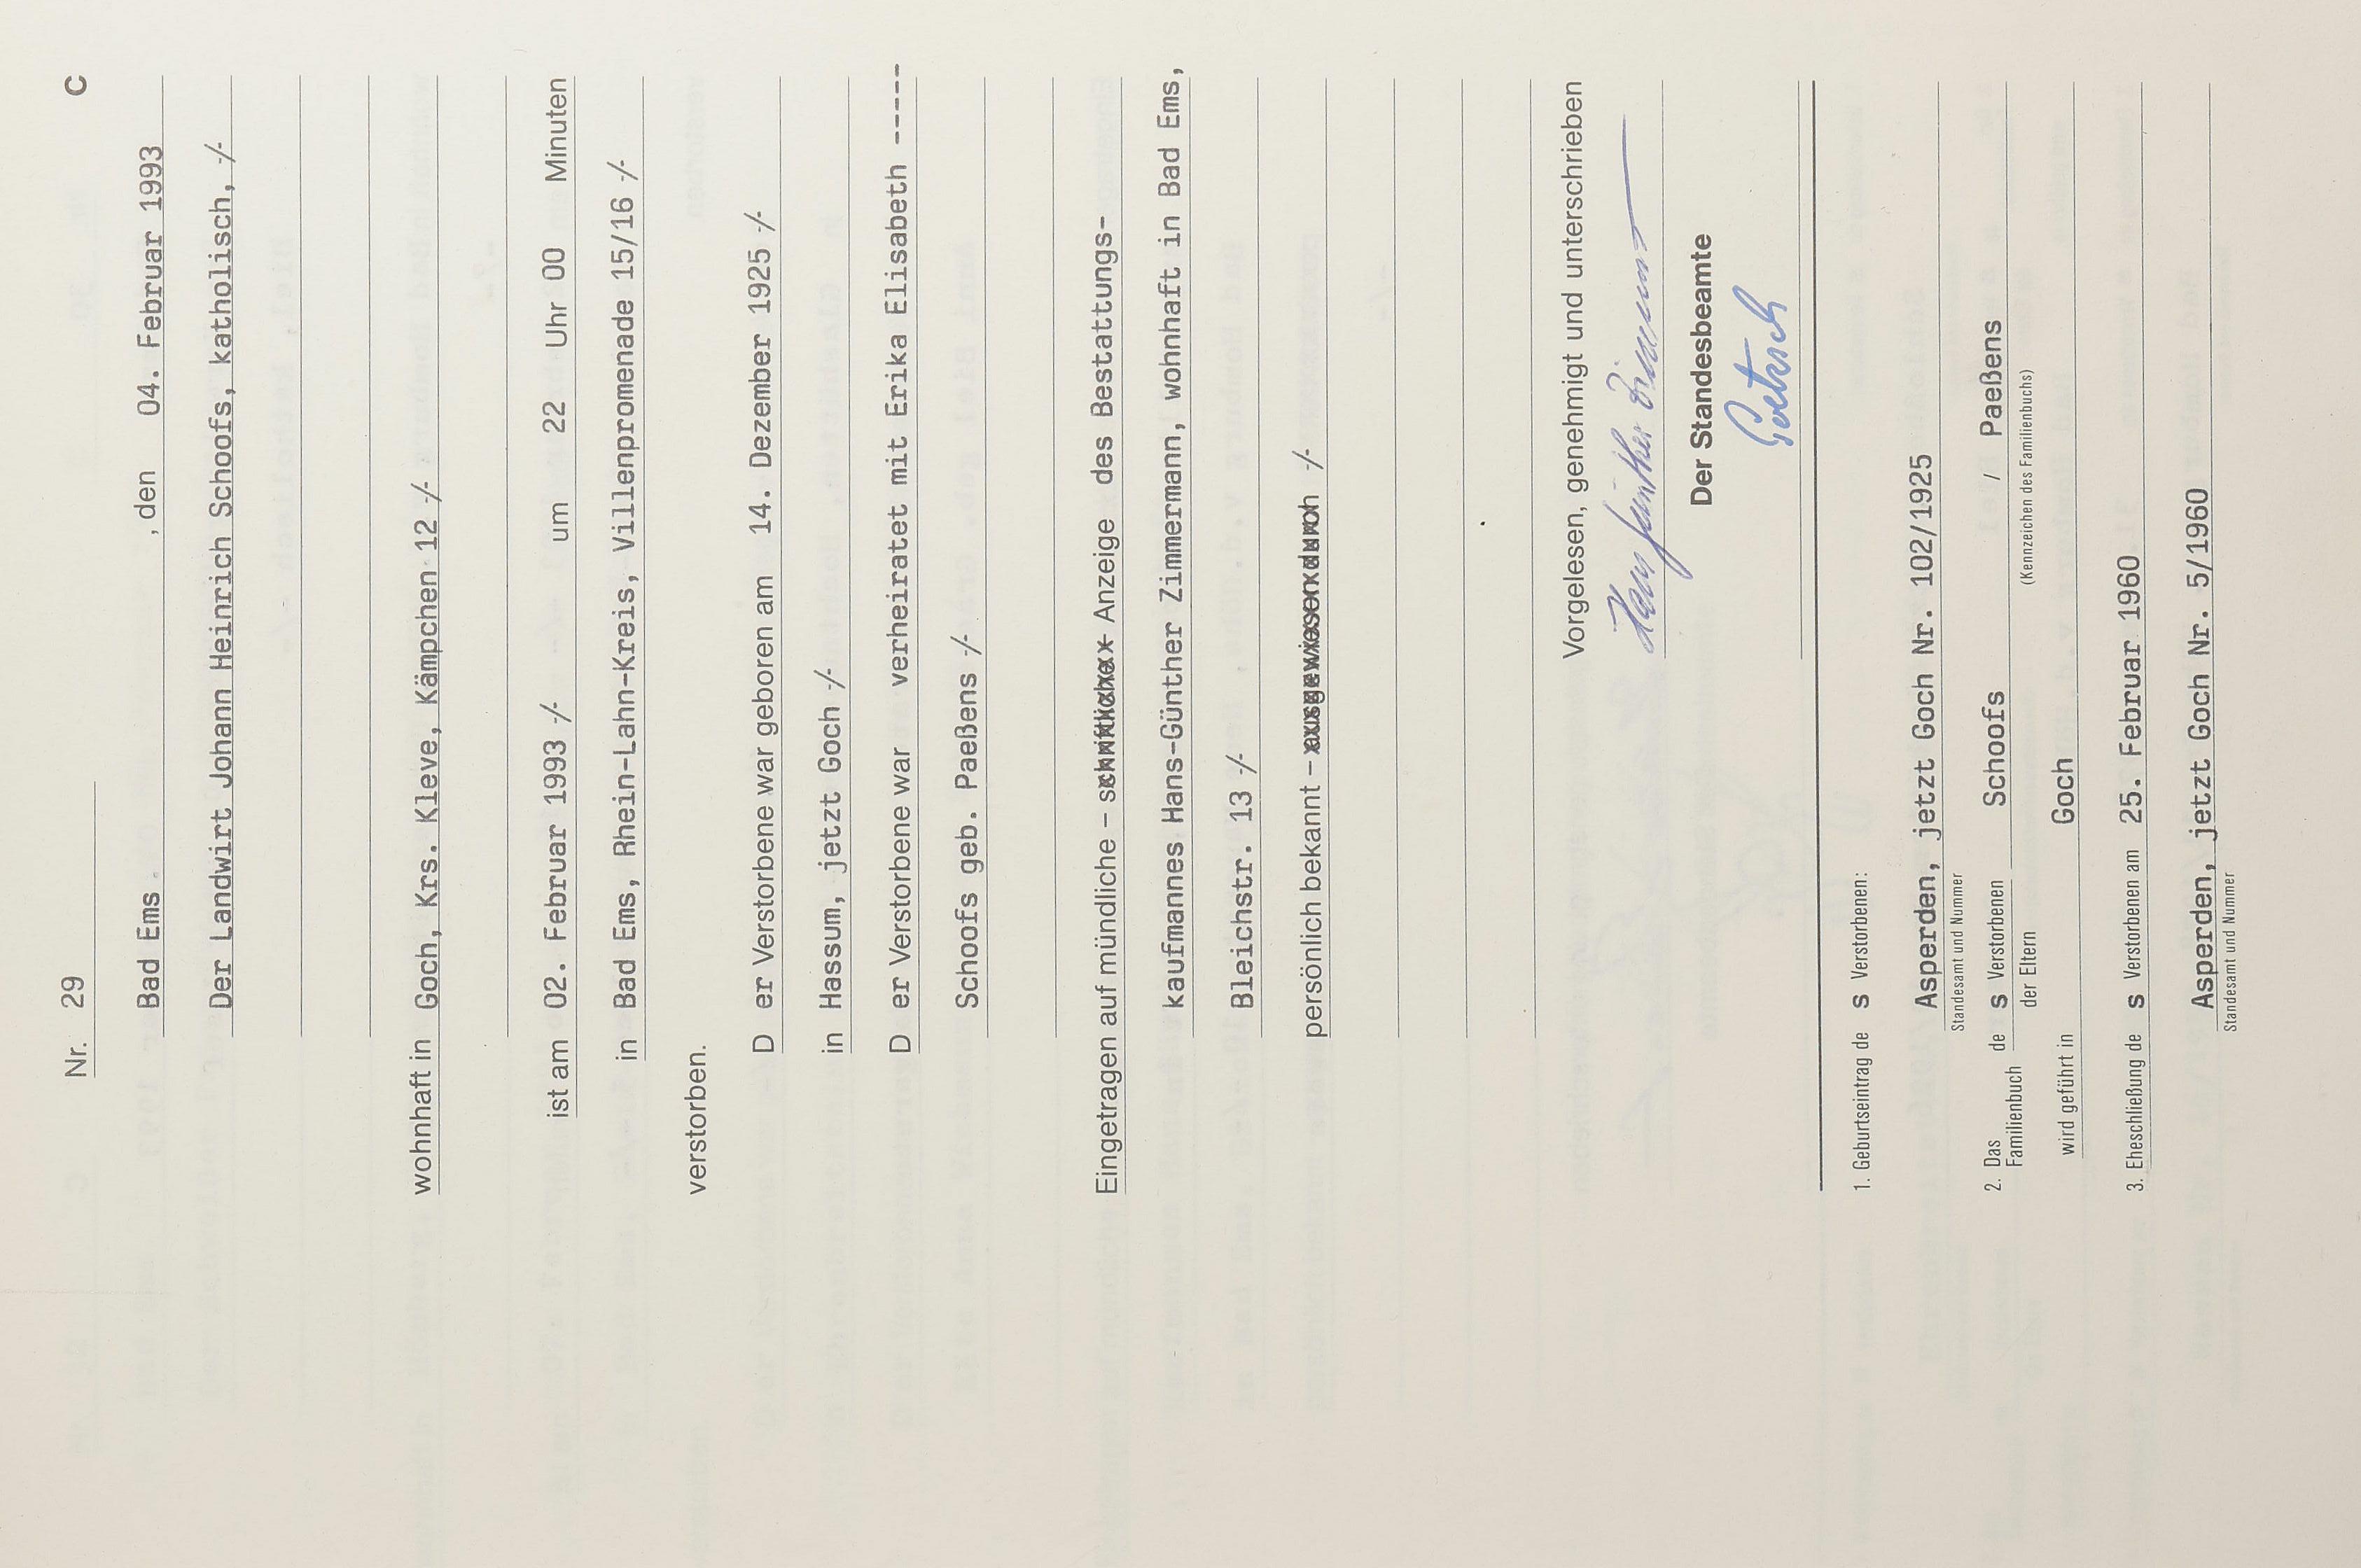 Nr. 29 C
Bad Ems , den 04. Februar 1993
Der Landwirt Johann Heinrich Schoofs, katholisch, -/-
wohnhaft in Goch, Krs. Kleve, Kämpchen 12 -/-
ist am 02. Februar 1993 -/- um 22 Uhr 00 Minuten
in Bad Ems, Rhein-Lahn-Kreis, Villenpromenade 15/16 -/-
verstorben.
D er Verstorbene war geboren am 14. Dezember 1925 -/-
in Hassum, jetzt Goch -/-
D er Verstorbene war verheiratet mit Erika Elisabeth -----
Schoofs geb. Paeßens -/-
Eingetragen auf mündliche – schriftliche – Anzeige des Bestattungs-
kaufmannes Hans-Günther Zimmermann, wohnhaft in Bad Ems,
Bleichstr. 13 -/-
persönlich bekannt – ausgewiesen durch -/-
Vorgelesen, genehmigt und unterschrieben
Hans Günther Zimmermann
Der Standesbeamte
1. Geburtseintrag de s Verstorbenen:
Asperden, jetzt Goch Nr. 102/1925
Standesamt und Nummer
2. Das Familienbuch de s Verstorbenen Schoofs / Paeßens
der Eltern (Kennzeichen des Familienbuchs)
wird geführt in Goch
3. Eheschließung de s Verstorbenen am 25. Februar 1960
Asperden, jetzt Goch Nr. 5/1960
Standesamt und Nummer